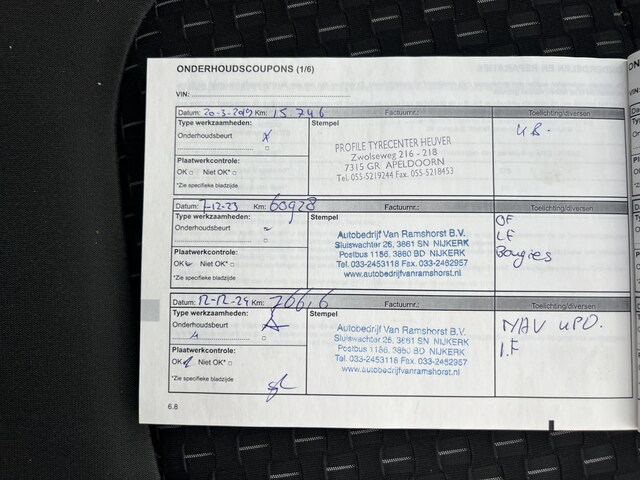 ONDERHOUDSCOUPONS (1/6)
VIN:
Datum: 20-3-2019 Km: 15 746 Factuurnr.: Toelichting/diversen
Type werkzaamheden: Stempel
Onderhoudsbeurt X
Plaatwerkcontrole:
OK □ Niet OK* □
*Zie specifieke bladzijde
PROFILE TYRECENTER HEUVER
Zwolseweg 216 - 218
7315 GR APELDOORN
Tel. 055-5219244 Fax. 055-5218453
Datum: 7-12-23 Km: 60928 Factuurnr.: Toelichting/diversen
Type werkzaamheden: Stempel
Onderhoudsbeurt
Plaatwerkcontrole:
OK Niet OK* □
*Zie specifieke bladzijde
Autobedrijf Van Ramshorst B.V.
Sluiswachter 26, 3861 SN NIJKERK
Postbus 1186, 3860 BD NIJKERK
Tel. 033-2453118 Fax. 033-2462957
www.autobedrijfvanramshorst.nl
OF
LF
Bougies
Datum: 12-12-24 Km: Factuurnr.: Toelichting/diversen
Type werkzaamheden: Stempel
Onderhoudsbeurt
A
Plaatwerkcontrole:
OK Niet OK* □
*Zie specifieke bladzijde
Autobedrijf Van Ramshorst B.V.
Sluiswachter 26, 3861 SN NIJKERK
Postbus 1186, 3860 BD NIJKERK
Tel. 033-2453118 Fax. 033-2462957
www.autobedrijfvanramshorst.nl
NAV UPD.
I.F
6.8